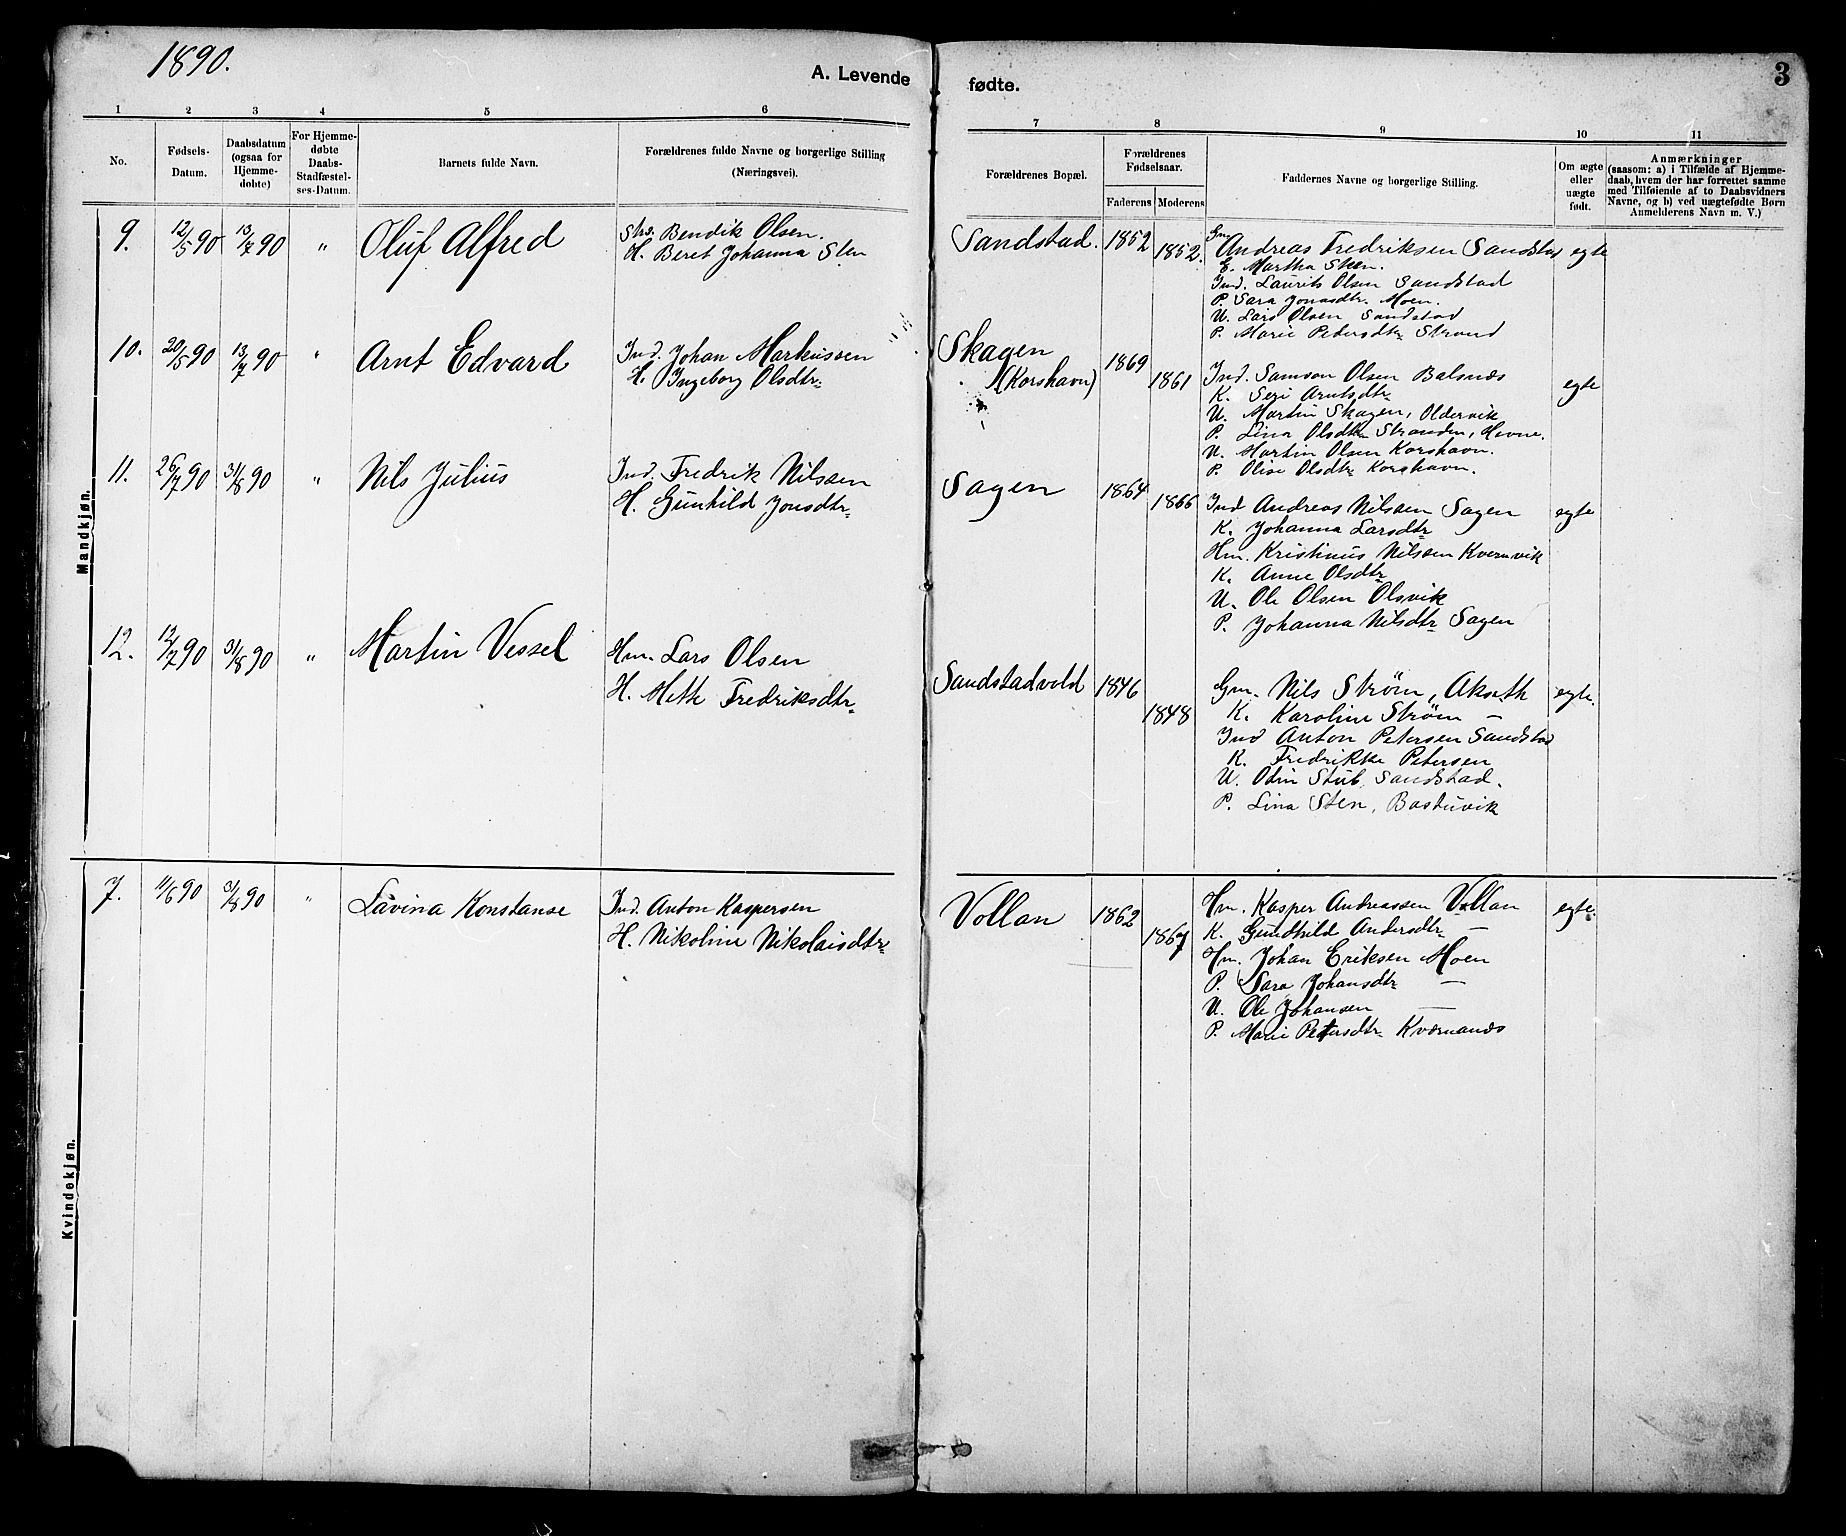 1890.
A. Levende fødte.
3
1 2 3 4 5 6 7 8 9 10 11
No.
Fødsels-
Datum.
Daabsdatum
(ogsaa for
Hjemme-
døbte)
For Hjemme-
døbte
Daabs-
Stadfæstel-
ses-Datum.
Barnets fulde Navn.
Forældrenes fulde Navne og borgerlige Stilling
(Næringsvei).
Forældrenes Bopæl.
Forældrenes
Fødselsaar.
Faderens Moderens
Faddernes Navne og borgerlige Stilling.
Om ægte
eller
uægte
født.
Anmærkninger
(saasom: a) i Tilfælde af Hjemme-
daab, hvem der har forrettet samme
med Tilføiende af to Daabsvidners
Navne, og b) ved uægtefødte Børn
Anmelderens Navn m. V.)
Mandkjøn.
9. 12/5 90 13/7 90 " Oluf Alfred
Bendik Olsen.
H. Beret Johanna Sten
Sandstad. 1852 1852.
Gm Andreas Fredriksen Sandstad
E. Martha Sten.
Ind. Laurits Olsen Sandstad
P. Sara Jonasdtr. Moen.
U. Lars Olsen Sandstad
P. Marie Petersdtr Strand
egte
10. 20/5 90 13/7 90 " Arnt Edvard
Ind. Johan Markussen
H. Ingeborg Olsdtr.
Skagen
(Korshavn)
1869 1861
Ind. Samson Olsen Balsnes
K. Seri Arntsdtr
U. Martin Skagen, Oldervik
P. Lina Olsdtr Stranden, Hevne.
U. Martin Olsen Korshavn.
P. Olise Olsdtr Korshavn.
egte
11. 26/7 90 31/8 90 " Nils Julius
Ind. Fredrik Nilssen
H. Gunhild Jonsdtr.
Sagen 1864 1866
Ind Andreas Nilssen Sagen
K. Johanna Larsdtr
Hm. Kristinus Nilssen Kvernvik
K. Anne Olsdtr
U. Ole Olsen Olsvik
P. Johanna Nilsdtr Sagen
egte
12. 12/7 90 31/8 90 " Martin Vessel
Hm. Lars Olsen
H. Meth Fredriksdtr.
Sandstadvold 1846 1848
Gm. Nils Strøm, Akseth
K. Karoline Strøm —
Ind Anton Petersen Sandstad
K. Fredrikke Petersen
U. Odin Stub, Sandstad.
P. Lina Sten, Bastuvik
egte.
Kvindekjøn.
7. 11/6 90 31/8 90 " Lavina Konstanse
Ind. Anton Kaspersen
H. Nikoline Nikolaisdtr.
Vollan 1862 1867
Hm. Kasper Andreassen Vollan
K. Gundhild Andersdtr —
Hm. Johan Eriksen Moen
P. Sara Johansdtr —
U. Ole Johansen —
P. Marie Petersdtr. Kværnanes
egte.